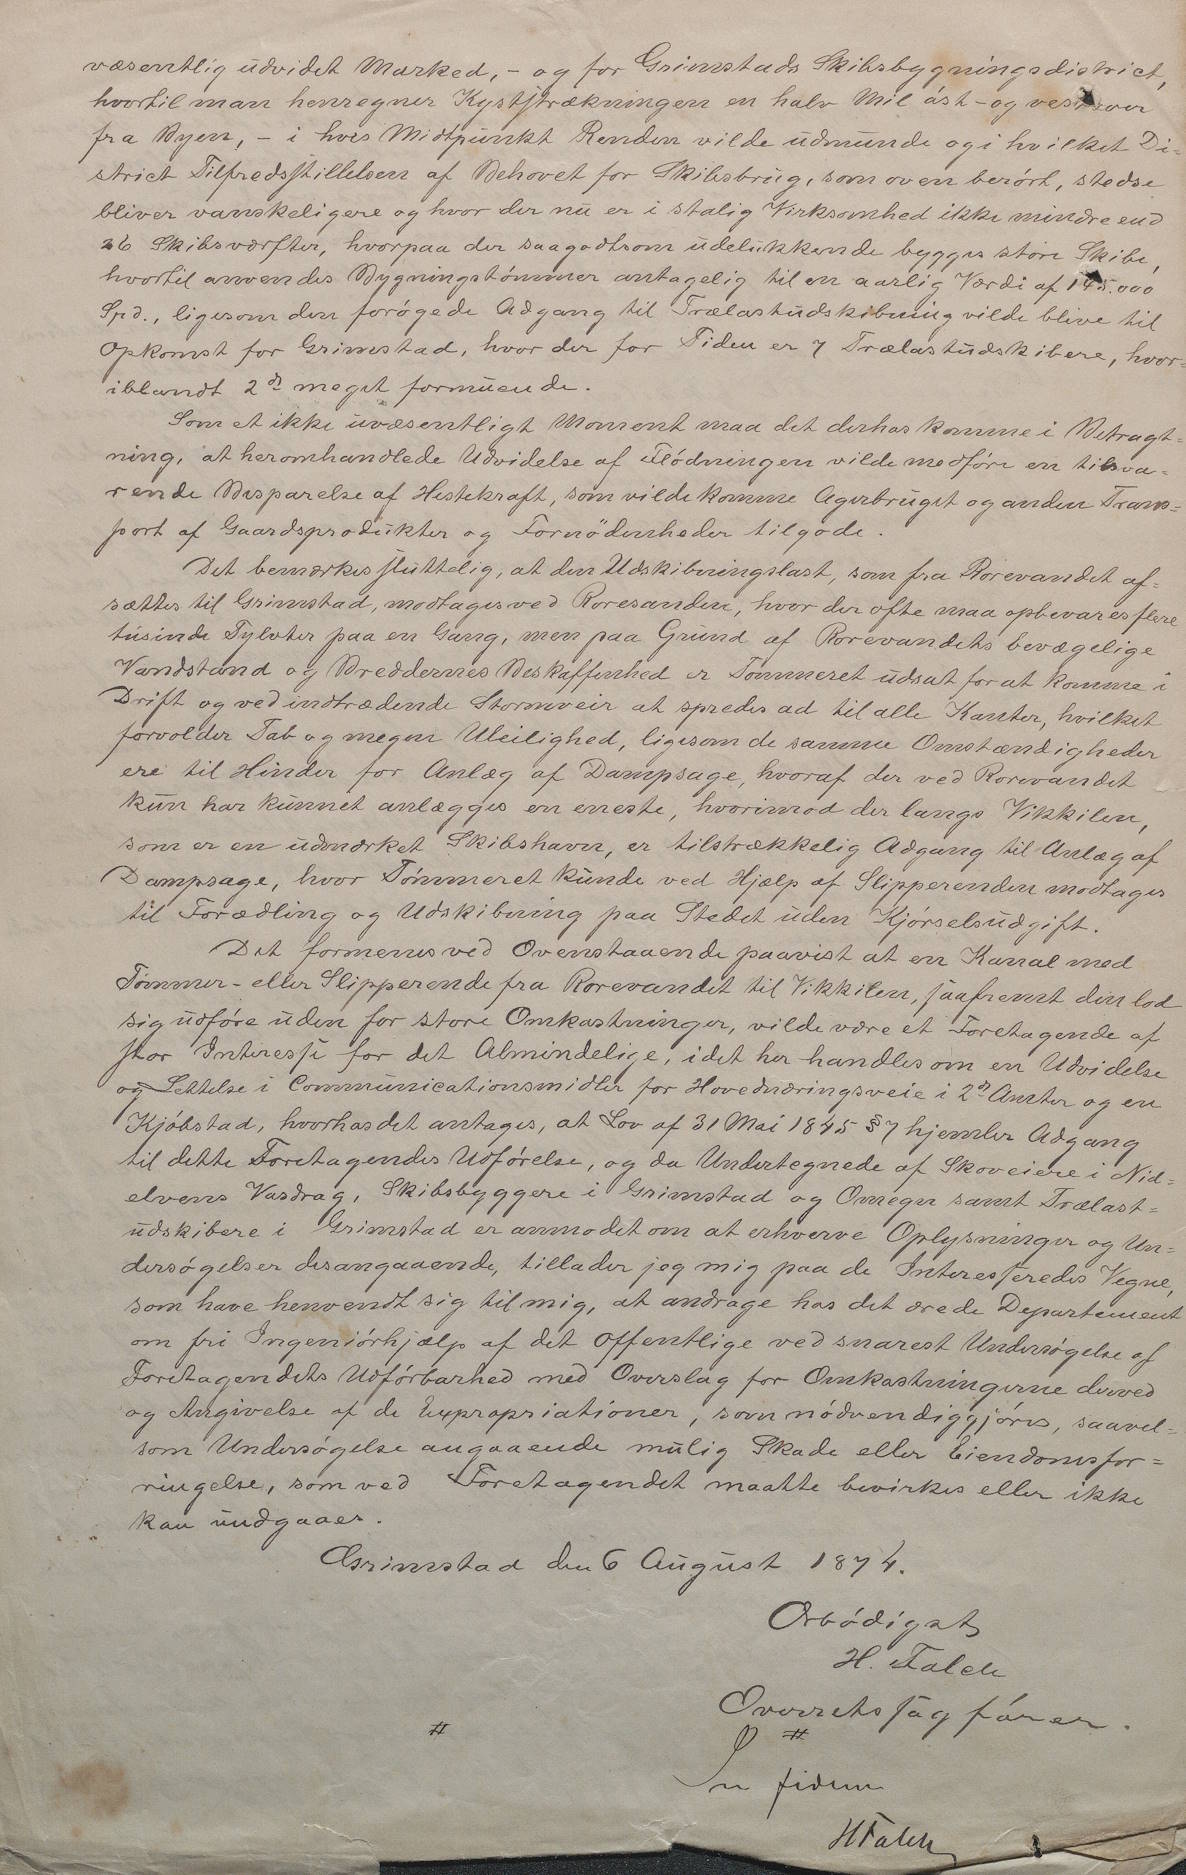 væsentlig udvidet Marked, - og for Grimstads Skibsbygningsdistrict,
hvortil man henregner Kyststrækningen en halv Mil øst- og vestover
fra Byen, - i hvis Midtpunkt Renden vilde udmunde og i hvilket Di=
strict Tilfredsstillelsen af Behovet for Skibsbrug, som oven berört, stedse
bliver vanskeligere og hvor der nu er i stadig Virksomhed ikke mindre end
26 Skibsværfter, hvorpaa der saagodtsom udelukkende bygges store Skibe,
hvortil anvendes Bygningstömmer antagelig til en aarlig Værdi af 145.000
Spd., ligesom den forögede Adgang til Trælastudskibning vilde blive til
Opkomst for Grimstad, hvor der for Tiden er 7 Trælastudskibere, hvor=
iblandt 2de meget formuende.
Som et ikke uvæsentligt Moment maa det derhos komme i Betragt=
ning, at heromhandlede Udvidelse af Flödningen vilde medföre en tilsva=
rende Besparelse af Hestekraft, som vilde komme Agerbruget og anden Trans=
port af Gaardsprodukter og Fornödenheder tilgode.
Det bemærkes sluttelig, at den Udskibningslast, som fra Rorevandet af=
sættes til Grimstad, modtages ved Roresanden, hvor der ofte maa opbevares flere
tusinde Tylvter paa en Gang, men paa Grund af Rorevandets bevægelige
Vandstand og Breddernes Beskaffenhed er Tömmeret udsat for at komme i
Drift og ved indtrædende Stormveir at spredes ad til alle Kanter, hvilket
forvolder Tab og megen Uleilighed, ligesom de samme Omstændigheder
ere til Hinder for Anlæg af Dampsage, hvoraf der ved Rorevandet
kun har kunnet anlægges en eneste, hvorimod der langs Vikkilen,
som er en udmærket Skibshavn, er tilstrækkelig Adgang til Anlæg af
Dampsage, hvor Tömmeret kunde ved Hjælp af Slipperenden modtages
til Forædling og Udskibning paa Stedet uden Kjörselsudgift.
Det formenes ved Ovenstaaende paavist at en Kanal med
Tömmer- eller Slipperende fra Rorevandet til Vikkilen, saafremt den lod
sig udföre uden for store Omkostninger, vilde være et Foretagende af
stor Interesse for det Almindelige, idet her handles om en Udvidelse
og Lettelse i Communicationsmidler for Hovednæringsveie i 2de Amter og en
Kjöbstad, hvorhos det antages, at Lov af 31 Mai 1845 § 7 hjemler Adgang
til dette Foretagendes Udförelse, og da Undertegnede af Skoveiere i Nid=
elvens Vasdrag, Skibsbyggere i Grimstad og Omegn samt Trælast=
udskibere i Grimstad er anmodet om at erhverve Oplysninger og Un=
dersögelser desangaaende, tillader jeg mig paa de Interesseredes Vegne,
som have henvendt sig til mig, at andrage hos det ærede Departement
om fri Ingeniörhjælp af det offentlige ved snarest Undersögelse af
Foretagendets Udförbarhed med Overslag for Omkostningerne derved
og Angivelse af de Expropriationer, som nödvendiggjöres, saavel=
som Undersögelse angaaende mulig Skade eller Eiendomsfor=
ringelse, som ved Foretagendet maatte bevirkes eller ikke
kan undgaaes.
Grimstad den 6 August 1874.
Ærbödigst
H. Falch
Overretssagförer.
# #
In fidem
HFalch